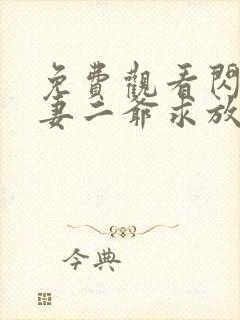 免費觀看閃
妻二爺求放
今典